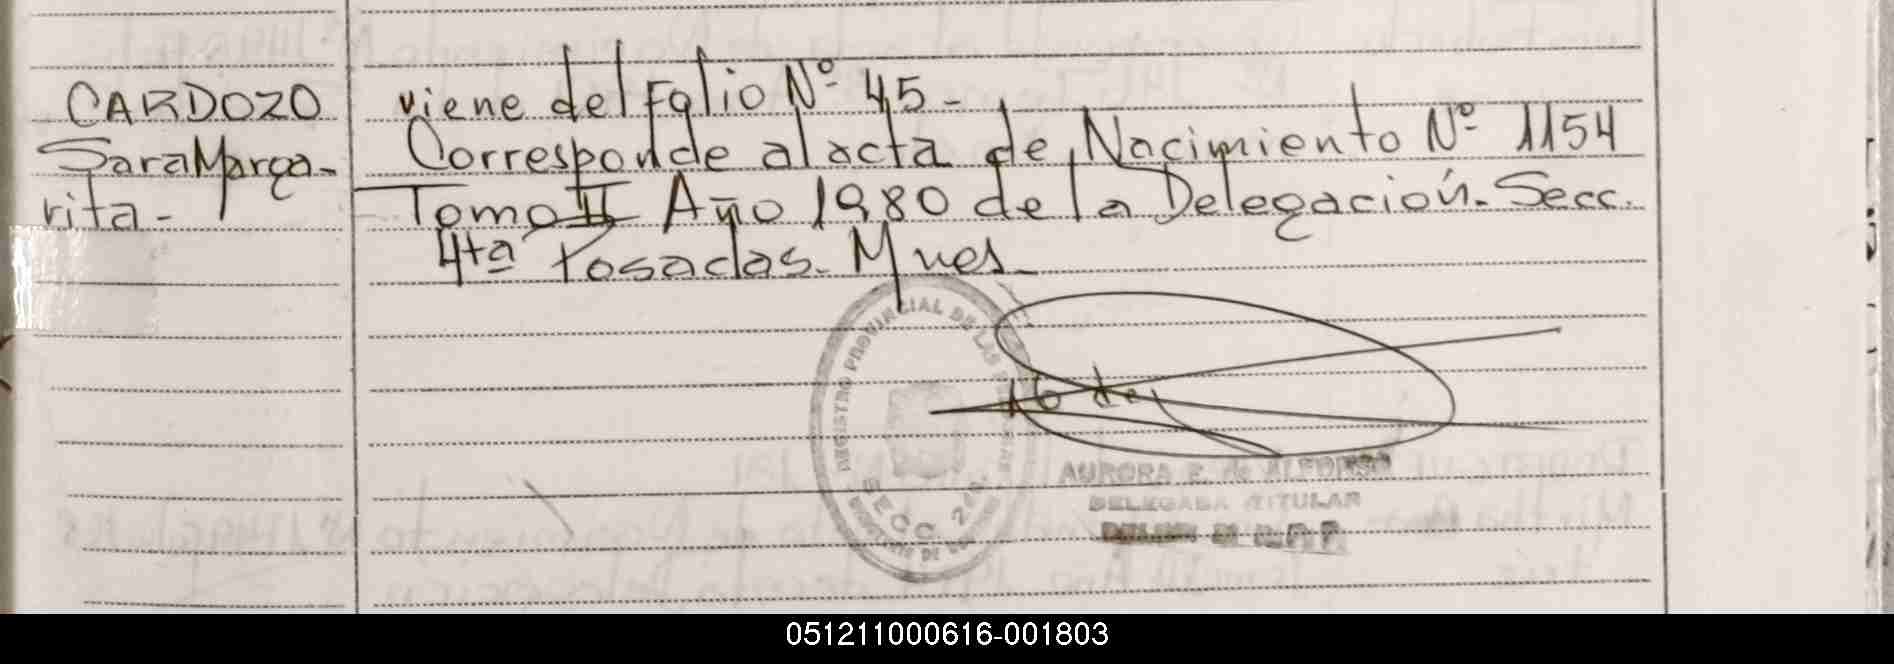 CARDOZO
Sara Marga-
rita-
viene del Folio Nº 45-
Corresponde al acta de Nacimiento Nº 1154
Tomo II Año 1980 de la Delegación. Secc.
4ta Posadas. Mnes-
REGISTRO PROVINCIAL DE LAS
SECC. 2
AURORA E. de ALFONSO
DELEGADA TITULAR
051211000616-001803